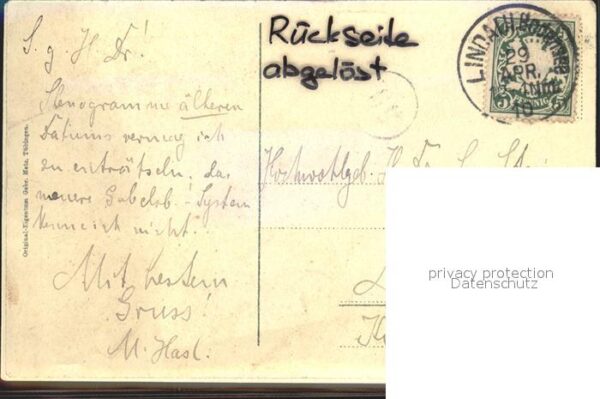 S. g. H. Dr.!
Stenogramme älteren
Datums vermag ich
zu enträtseln, das
neuere Gabelsb.-System
kenn ich nicht.
Mit bestem
Gruss!
M. Hasl.
Original-Eigentum Gebr. Metz, Tübingen.
Rückseite
abgelöst
LINDAU
29
APR.
10
5 PFENNIG
Hochwohlgeb. H. Dr.
privacy protection
Datenschutz